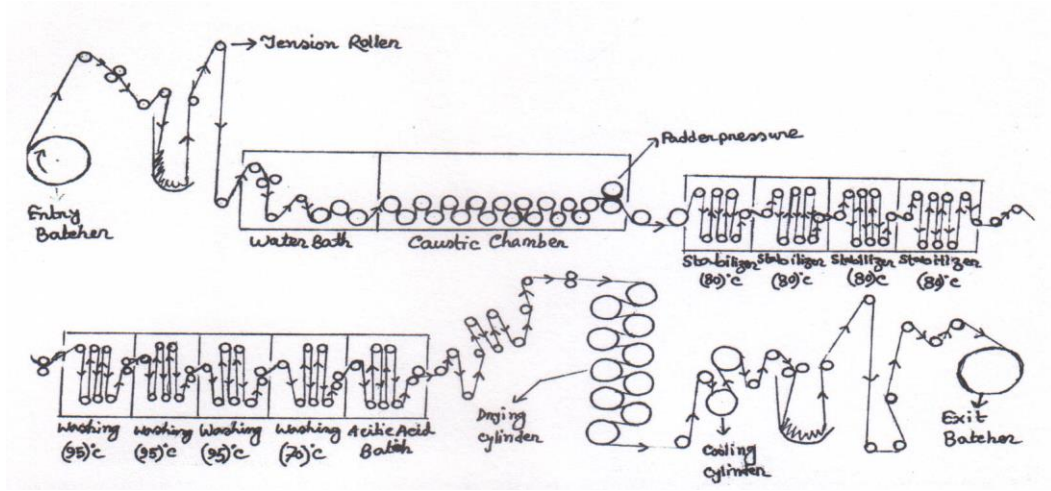 Tension Roller
Padder pressure
Entry
Batcher
Water Bath
Caustic Chamber
Stabilizer
(80)°c
Stabilizer
(80)°c
Stabilizer
(80)°c
Stabilizer
(80)°c
Washing
(95)°c
Washing
(95)°c
Washing
(95)°c
Washing
(70)°c
Acitic Acid
Bath
Drying
cylinder
Cooling
Cylinder
Exit
Batcher